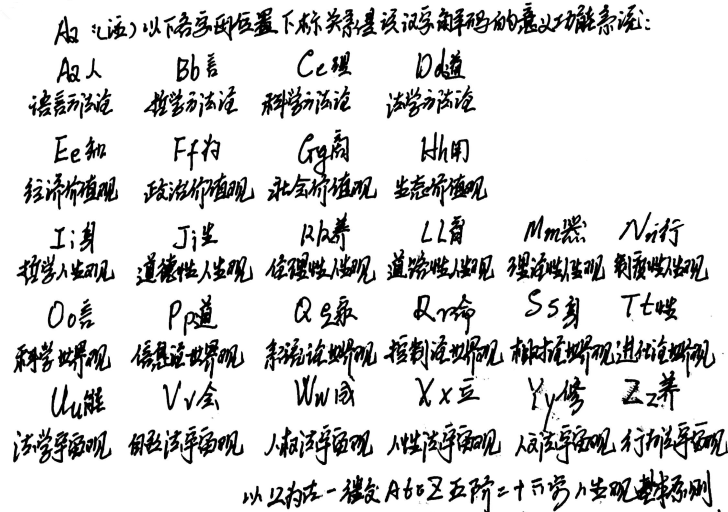 Aa:(注)以下各字母位置下标关系是该汉字解码的意义功能系统:
Aa人 Bb言 Cc理 Dd道
语言方法论 哲学方法论 科学方法论 法学方法论
Ee知 Ff为 Gg商 Hh用
经济价值观 政治价值观 社会价值观 生态价值观
Ii身 Jj生 Kk养 Ll育 Mm器 Nn行
哲学人生观 道德性人生观 伦理性人生观 道路性人生观 理论性人生观 制度性人生观
Oo言 Pp道 Qq家 Rr命 Ss身 Tt性
科学世界观 信息论世界观 系统论世界观 控制论世界观 相对论世界观 进化论世界观
Uu能 Vv会 Ww成 Xx立 Yy修 Zz养
法学宇宙观 自然法宇宙观 人权法宇宙观 人性法宇宙观 人文法宇宙观 行为法宇宙观
以上为 Aa to Z 五阶二十六字人生观基本原则